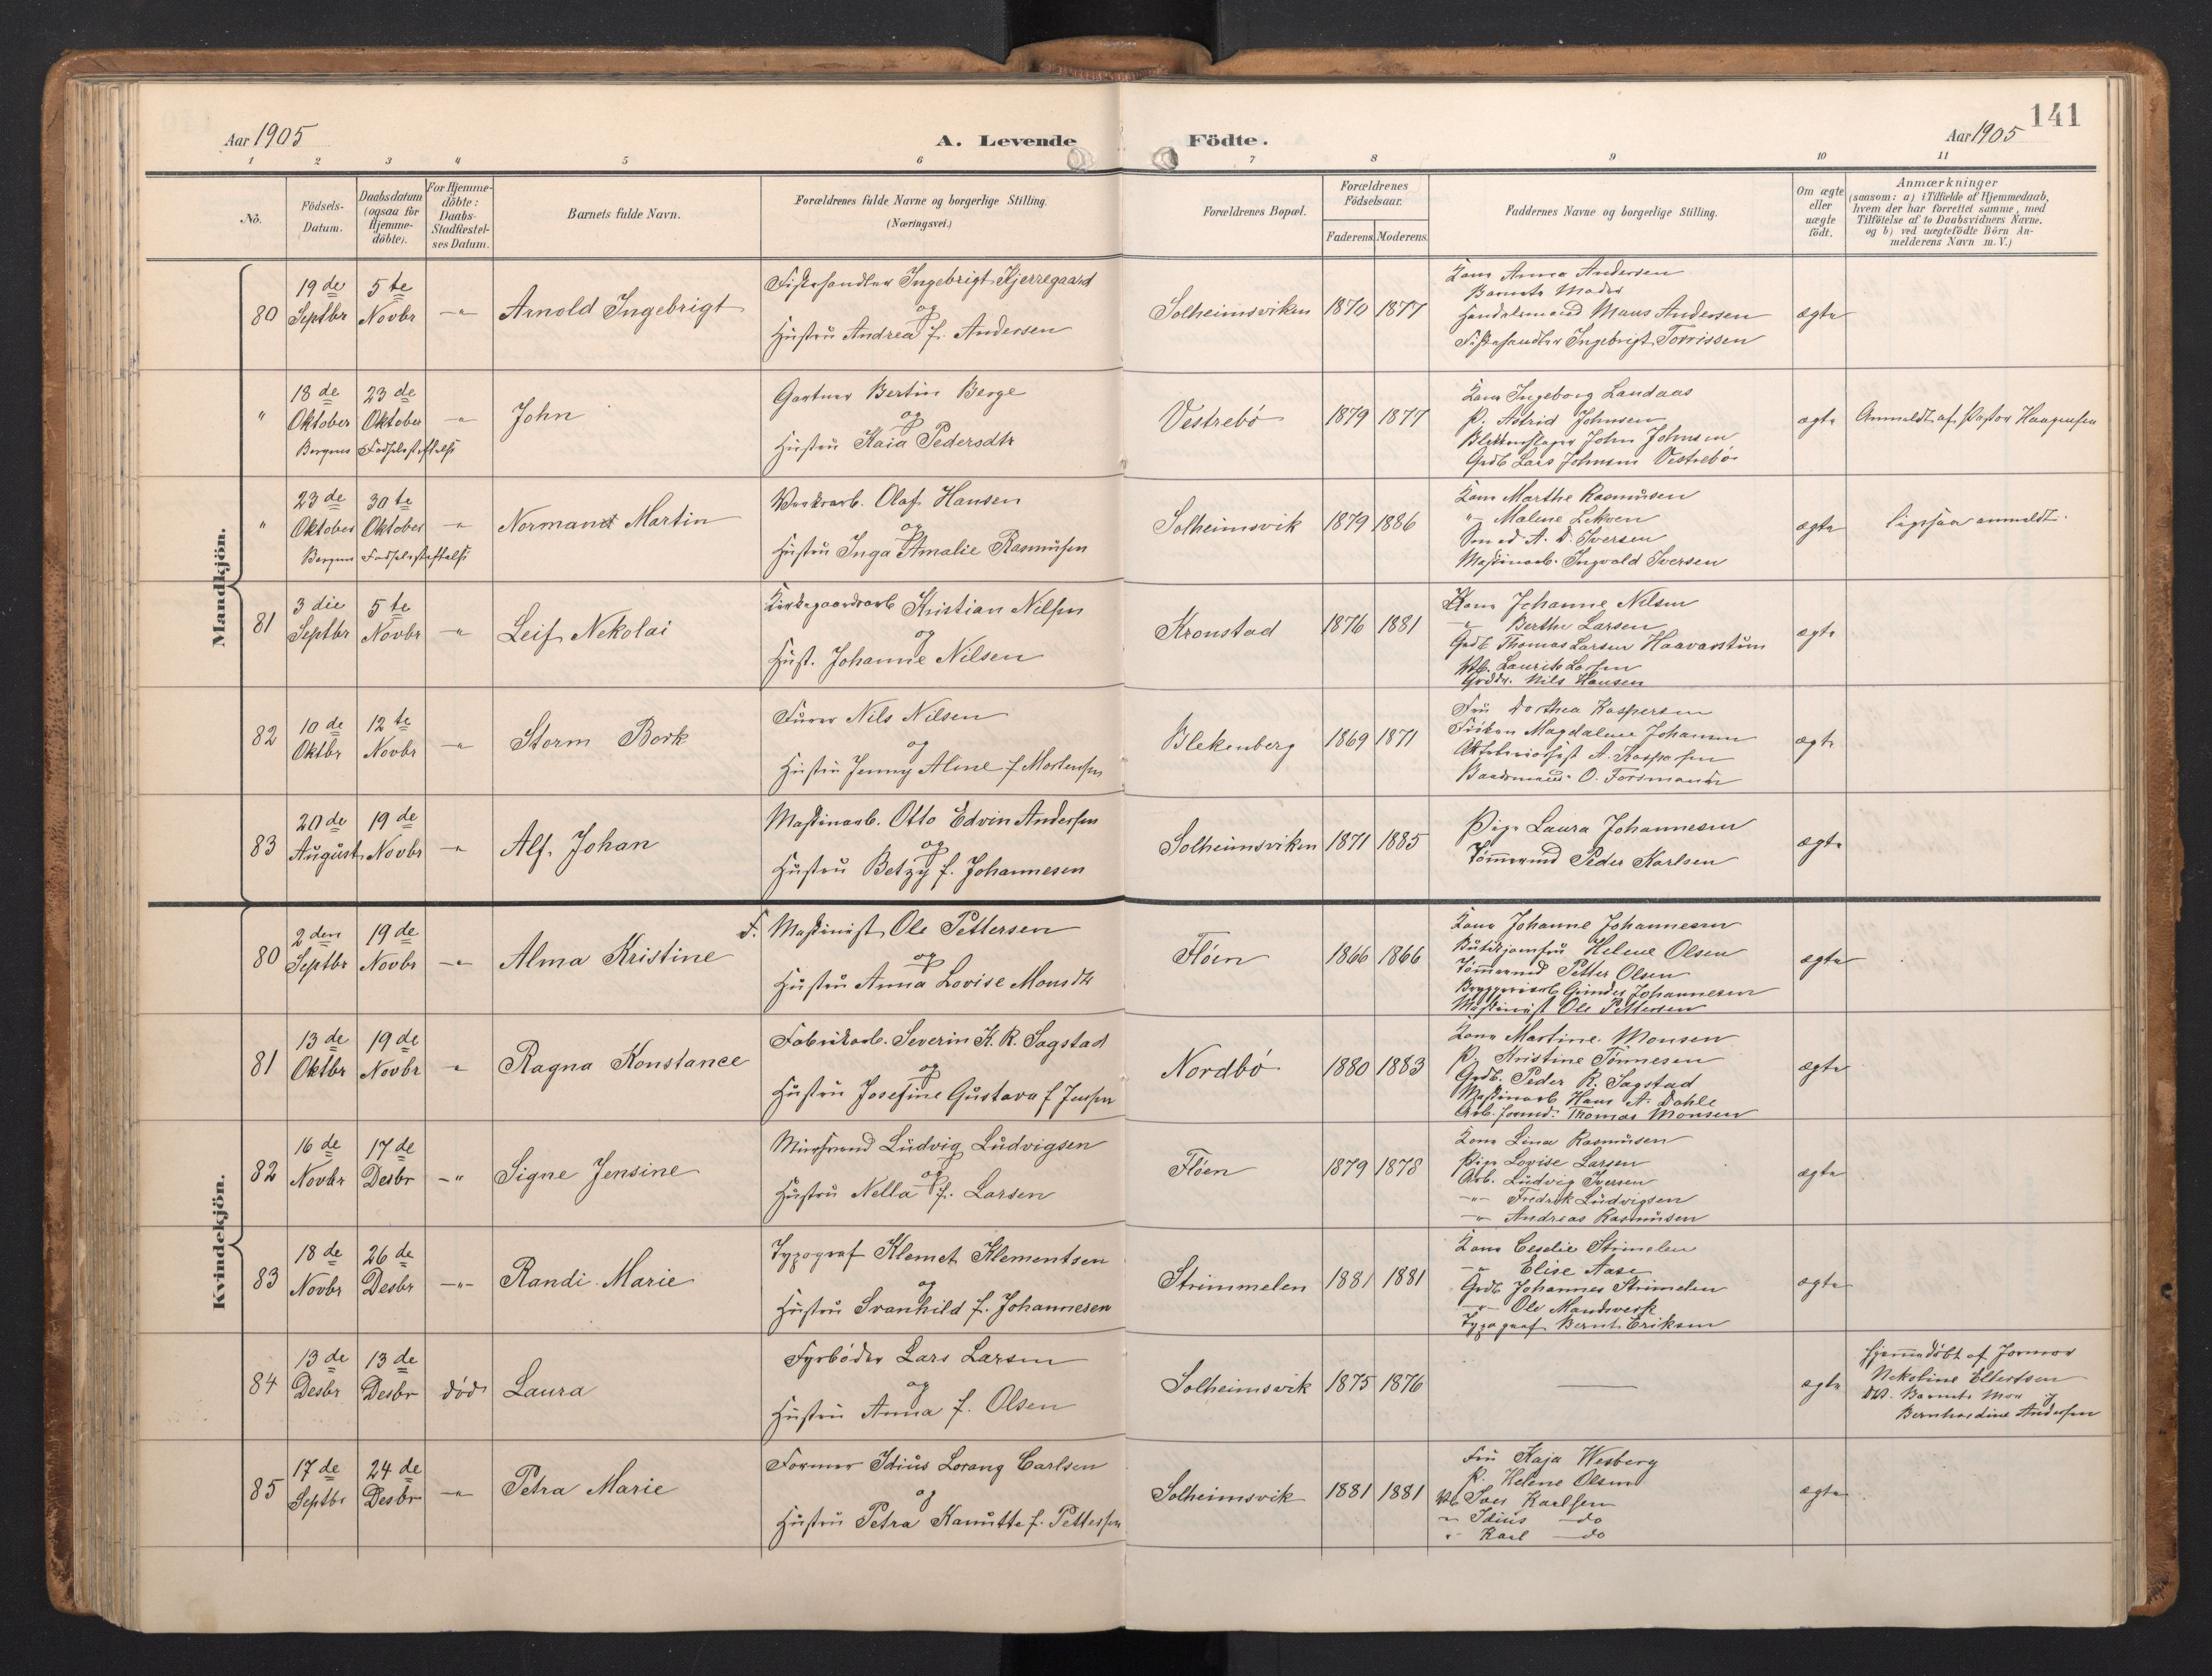 141
Aar 1905
A. Levende Födte.
Aar 1905
1 2 3 4 5 6 7 8 9 10 11
No.
Födsels-Datum.
Daabsdatum (ogsaa for Hjemme-döbte).
For Hjemme-döbte: Daabs-Stadfæstel-ses Datum.
Barnets fulde Navn.
Forældrenes fulde Navne og borgerlige Stilling.
(Næringsvei.)
Forældrenes Bopæl.
Forældrenes Födselsaar.
Faderens. Moderens.
Faddernes Navne og borgerlige Stilling.
Om ægte eller uægte födt.
Anmærkninger
(saasom: a) i Tilfælde af Hjemmedaab,
hvem der har forrettet samme, med
Tilföielse af to Daabsvidners Navne.
og b) ved uægtefödte Börn An-
melderens Navn m. V.)
Mandkjön.
80 19de Septbr 5te Novbr -"- Arnold Ingebrigt
Fiskehandler Ingebrigt Hjerregaard
og
Hustru Andrea f. Andersen
Solheimsviken 1870 1877
Kone Anna Andersen
Barnets Moder
Handelsmand Mons Andersen
Fiskehandler Ingebrigt Torrissen
ægte
" 18de Oktober 23de Oktober -"- John
Bergens Fødselsstiftelse
Gartner Bertin Berge
og
Hustru Kaia Pedersdtr
Vestrebö 1879 1877
Kone Ingeborg Landaas
P. Astrid Johnsen
Blikkenslager John Johnsen
Grdb Lars Johnsen Vestrebö
ægte
Anmeldt af Pastor Haagensen
" 23de Oktober 30te Oktober -"- Normand Martin
Bergens Fødselsstiftelse
Verksarb. Olaf Hansen
og
Hustru Inga Amalie Rasmusen
Solheimsvik 1879 1886
Kone Marthe Rasmusen
-"- Malene Lekven
Smed A. D. Iversen
Maskinarb. Ingvald Iversen
ægte
ligesaa anmeldt.
81 3die Septbr 5te Novbr -"- Leif Nekolai
Kirkegaardsarb Kristian Nilsen
og
Hust. Johanne Nilsen
Kronstad 1876 1881
Kone Johanne Nilsen
-"- Berthe Larsen
Grdb Thomas Larsen Haavarstun
Ab. Laurits Larsen
Grddr. Nils Hansen
ægte
82 10de Oktbr 12te Novbr -"- Storm Bork
Furer Nils Nilsen
og
Hustru Jenny Aline f Mortensen
Blekenberg 1869 1871
Fru Dorthea Kaspersen
Frøken Magdalene Johansen
A. Kaspersen
Baadsmand O. Forsmann
ægte
83 20de August 19de Novbr -"- Alf Johan
Maskinarb. Otto Edvin Andersen
og
Hustru Betzy f. Johannesen
Solheimsviken 1871 1885
Pige Laura Johannesen
Tömmermd Peder Karlsen
ægte
Kvindekjön.
80 2den Septbr 19de Novbr -"- Alma Kristine
F. Maskinist Ole Pettersen
og
Hustru Anna Lovise Monsdtr
Flöen 1866 1866
Kone Johanne Johannesen
Butikjomfru Helene Olsen
Tömmermd Petter Olsen
Bryggeriarb Johannesen
Maskinist Ole Pettersen
ægte
81 13de Oktbr 19de Novbr -"- Ragna Konstance
Fabrikarb. Severin K. R. Sagstad
og
Hustru Josefine Gustava f Jensen
Nordbö 1880 1883
Kone Martine Monsen
P. Kristine Tönnesen
Grdb. Peder R. Sagstad
Maskinarb Hans A. Dahle
Arb. formd. Thomas Monsen
ægte
82 16de Novbr 17de Desbr -"- Signe Jensine
Minørmand Ludvig Ludvigsen
og
Hustru Nella f. Larsen
Flöen 1879 1878
Kone Lina Rasmusen
Pige Lovise Larsen
Arb. Ludvig Iversen
-"- Fredrik Ludvigsen
-"- Andreas Rasmusen
ægte
83 18de Novbr 26de Desbr -"- Randi Marie
Typograf Klemet Klementsen
og
Hustru Svanhild f. Johannesen
Strimmelen 1881 1881
Kone Ceselie Strimelen
-"- Elise Aase
Grdb Johannes Strimelen
-"- Ole Mandsverk
Typograf Bernt Eriksen
ægte
84 13de Desbr 13de Desbr död Laura
Fyrböder Lars Larsen
og
Hustru Anna f. Olsen
Solheimsvik 1875 1876
ægte
Hjemmedöbt af Jormor
Nekoline Ellertsen
DV. Barnets Mor og
Bernhardine Andersen
85 17de Septbr 24de Desbr -"- Petra Marie
Former Idius Lorang Carlsen
og
Hustru Petra Kanutte f. Pettersen
Solheimsvik 1881 1881
Fru Kaja Wesberg
P. Helene Olsen
Ab Ivar Karlsen
-"- Idius -do
" Karl -do
ægte